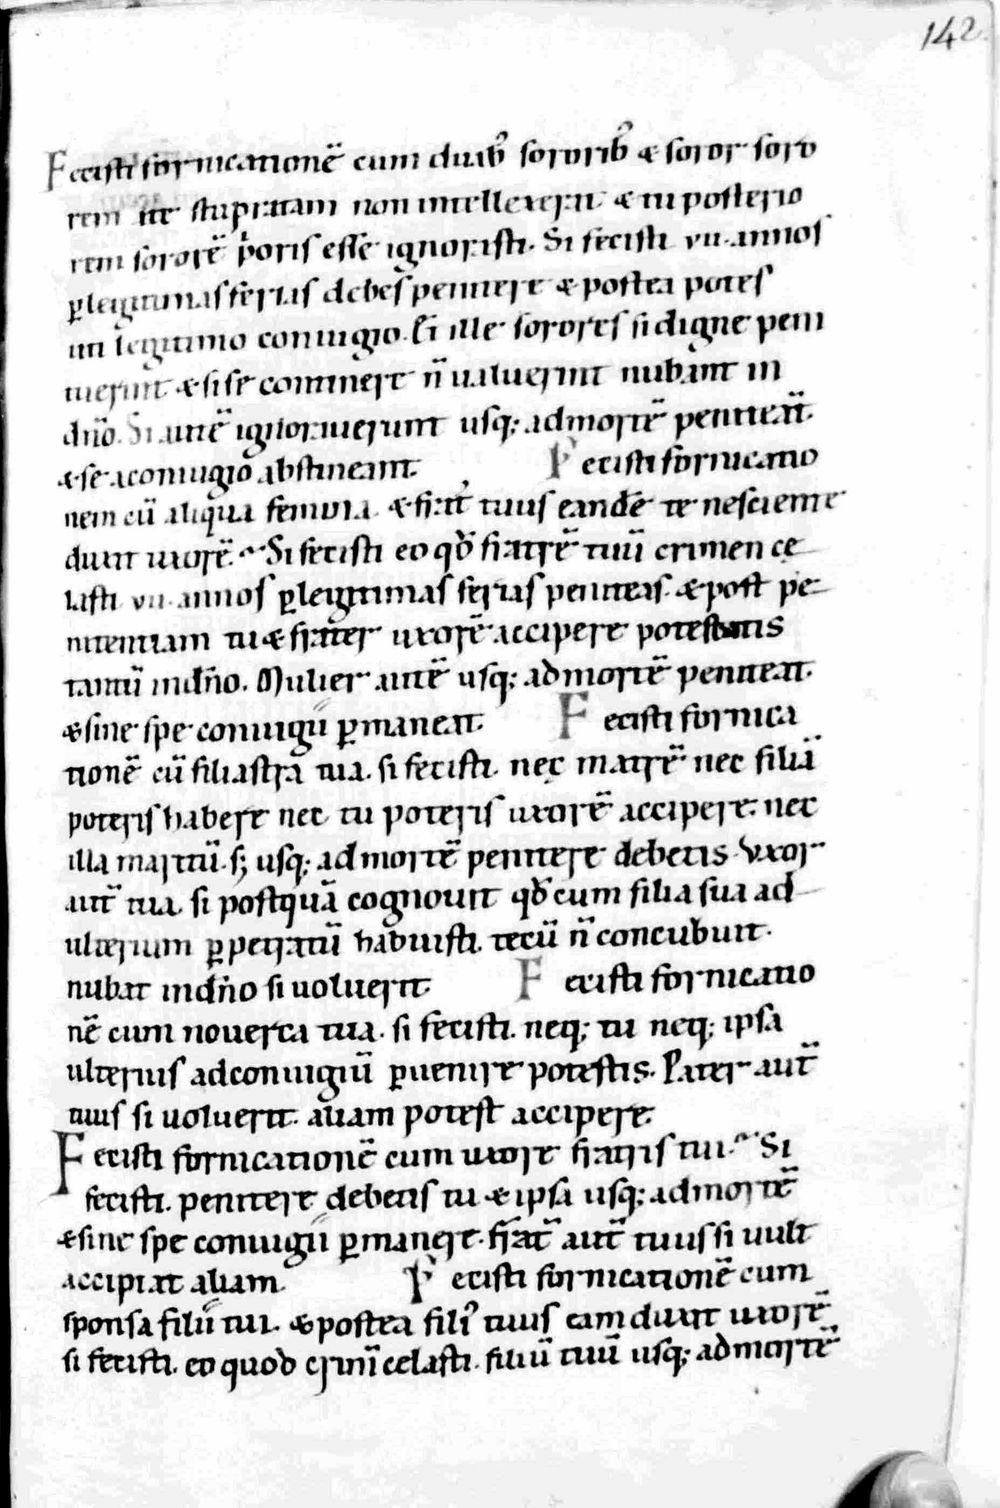 142.
Fecisti fornicationē cum duab; sororib; & soror soro
rem ste stupratam non intellexerit & tu posterio
rem sororē p̄oris esse ignorasti. Si fecisti vii. annos
p̱legitimas ferias debes penitere & postea potes
uti legitimo coniugio. Et ille sorores si digne peni
tuerint & si se continere n̄ ualuerint nubant in
dn̄o. Si autē ignorauerunt usq; ad mortē peniteat̄.
& se a coniugio abstineant. Fecisti fornicatio
nem cū aliqua femina & frat̄ tuus eandē te nesciente
duxit uxorē. Si fecisti eo qd̄ fratrē tuū crimen cę
lasti vii. annos p̱legitimas ferias peniteas. & post pę
nitentiam tuā frater uxorē accipere potestatis
tantū in dn̄o. Mulier autē usq; ad mortē peniteat.
& sine spe coniugii p̱maneat. Fecisti fornica
tionē cū filiastrā tua. si fecisti. nec matrē nec filiā
poteris habere nec tu poteris uxorē accipere. nec
illa maritū. s; usq; ad mortē penitere debetis. Vxor
aut̄ tua. si postquā cognouit qd̄ cum filia sua ad
ulterium p̱petratū habuisti. tecū n̄ concubuit.
nubat in dn̄o si uoluerit. Fecisti fornicatio
nē cum nouerca tua. si fecisti. neq; tu neq; ipsa
ulterius ad coniugiū p̱uenire potestis. Pater aut̄
tuus si uoluerit. aliam potest accipere.
Fecisti fornicationē cum uxore fratris tui. Si
fecisti. penitere debetis tu & ipsa usq; ad mortē
& sine spe coniugii p̱manere. frat̄ aut̄ tuus si uult
accipiat aliam. Fecisti fornicationē cum
sponsa filii tui. & postea fili' tuus eam duxit uxorē
si fecisti. eo quod crim̄ celasti. filiū tuū usq; ad mortē